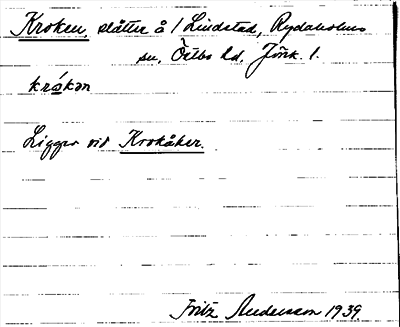 Kroken, slåtter å 1 Lindstad, Rydaholms
sn, Östbo hd, Jönk. l.
krókən
Ligger vid Krokåker.
Fritz Andersson 1939